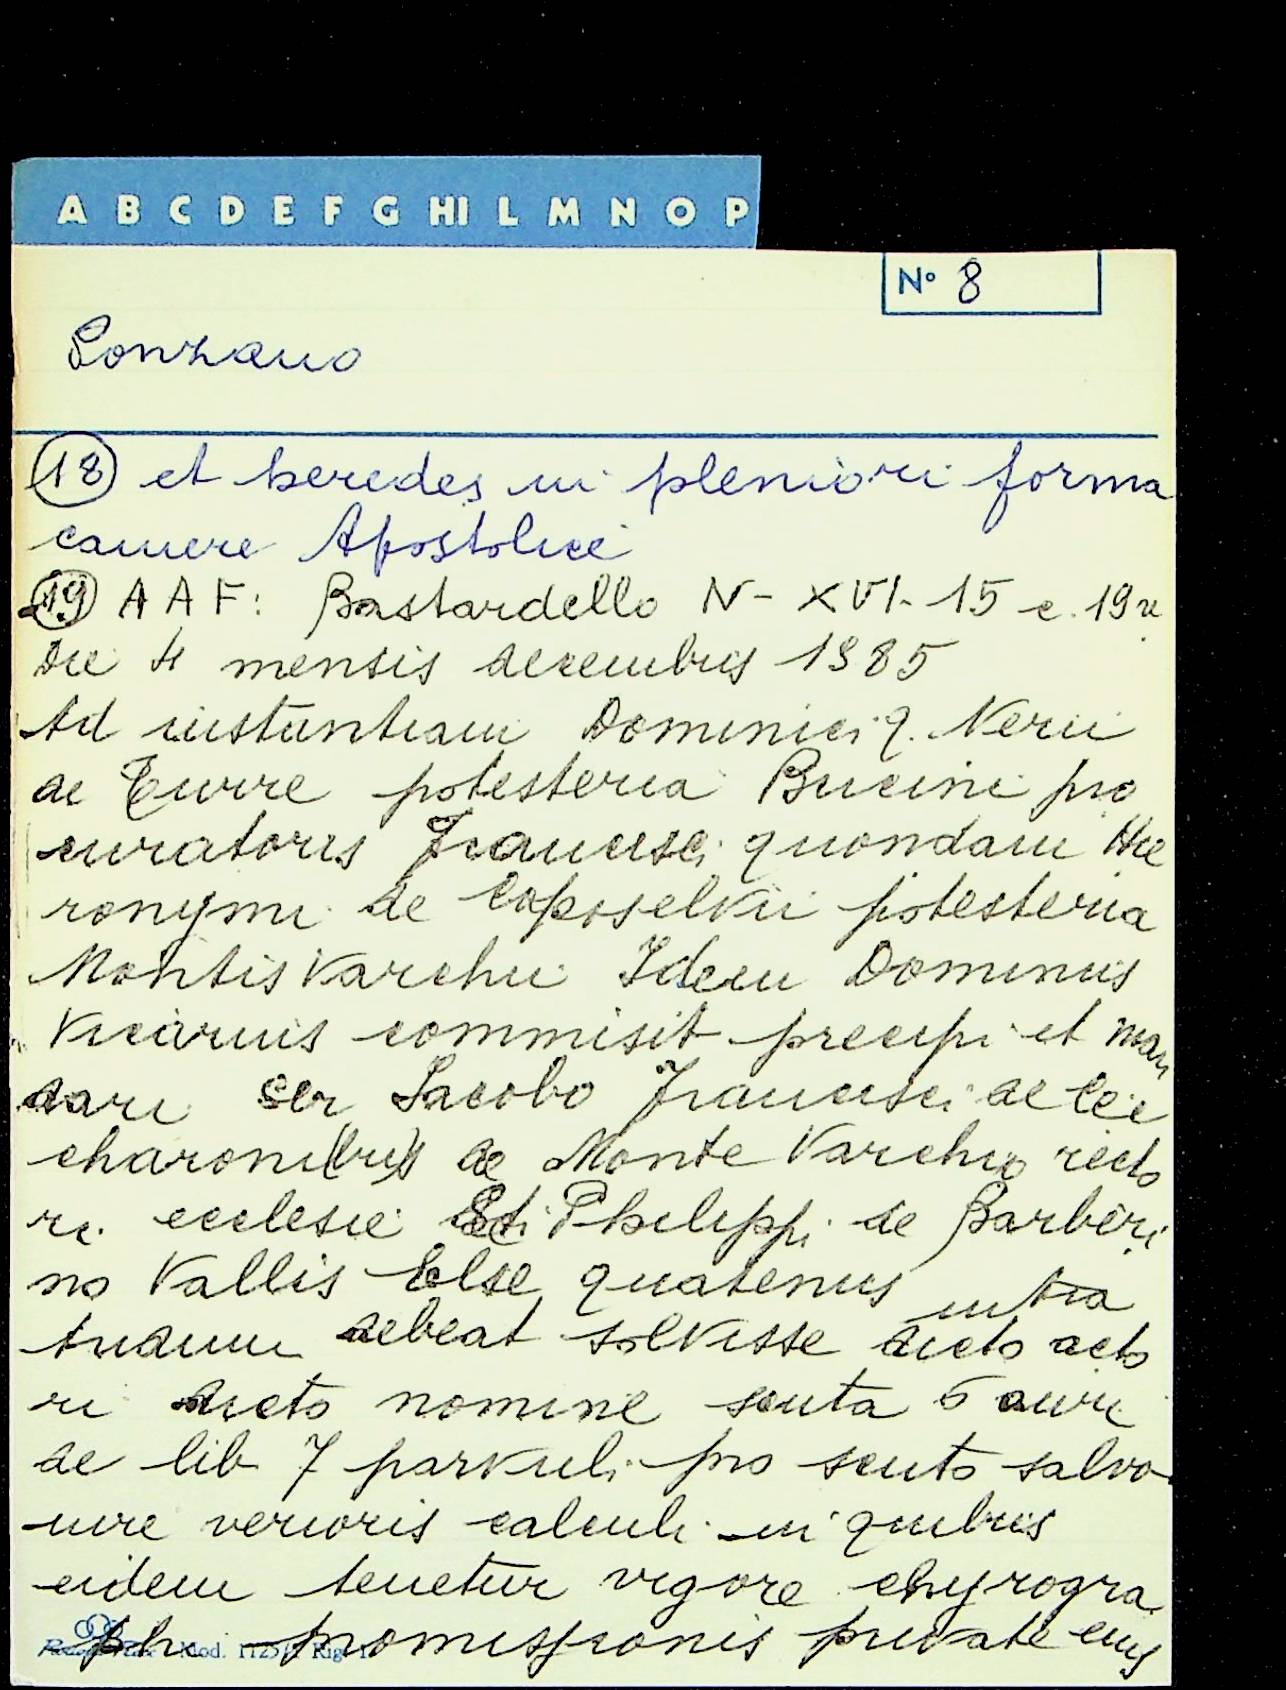 A B C D E F G HI L M N O P
N° 8
Gonzano
(18) et heredes in pleniori forma
camere Apostolice
(19) A A F: Bastardello N- XVI- 15 c. 19v
Die 4 mensis decembris 1585
Ad instantiam Dominici q. Nerii
de Turre potesteria Bucini pro
curatoris Francisci quondam Hie
ronymi de Caposelvii potesteria
Montis Varchii Idem Dominus
Vicarius commisit precipi et man
dari ser Jacobo Francisci de
de Monte Varchio recto
ri ecclesie Sti Philippi de Barberi
no Vallis Else quatenus intra
triduum debeat solvisse dicto acto
ri dicto nomine scuta 6 auri
de lib 7 parvuli pro scuto salvo
iure verioris calculi in quibus
eidem tenetur vigore chyrogra
phi promissionis private eius
Mod.